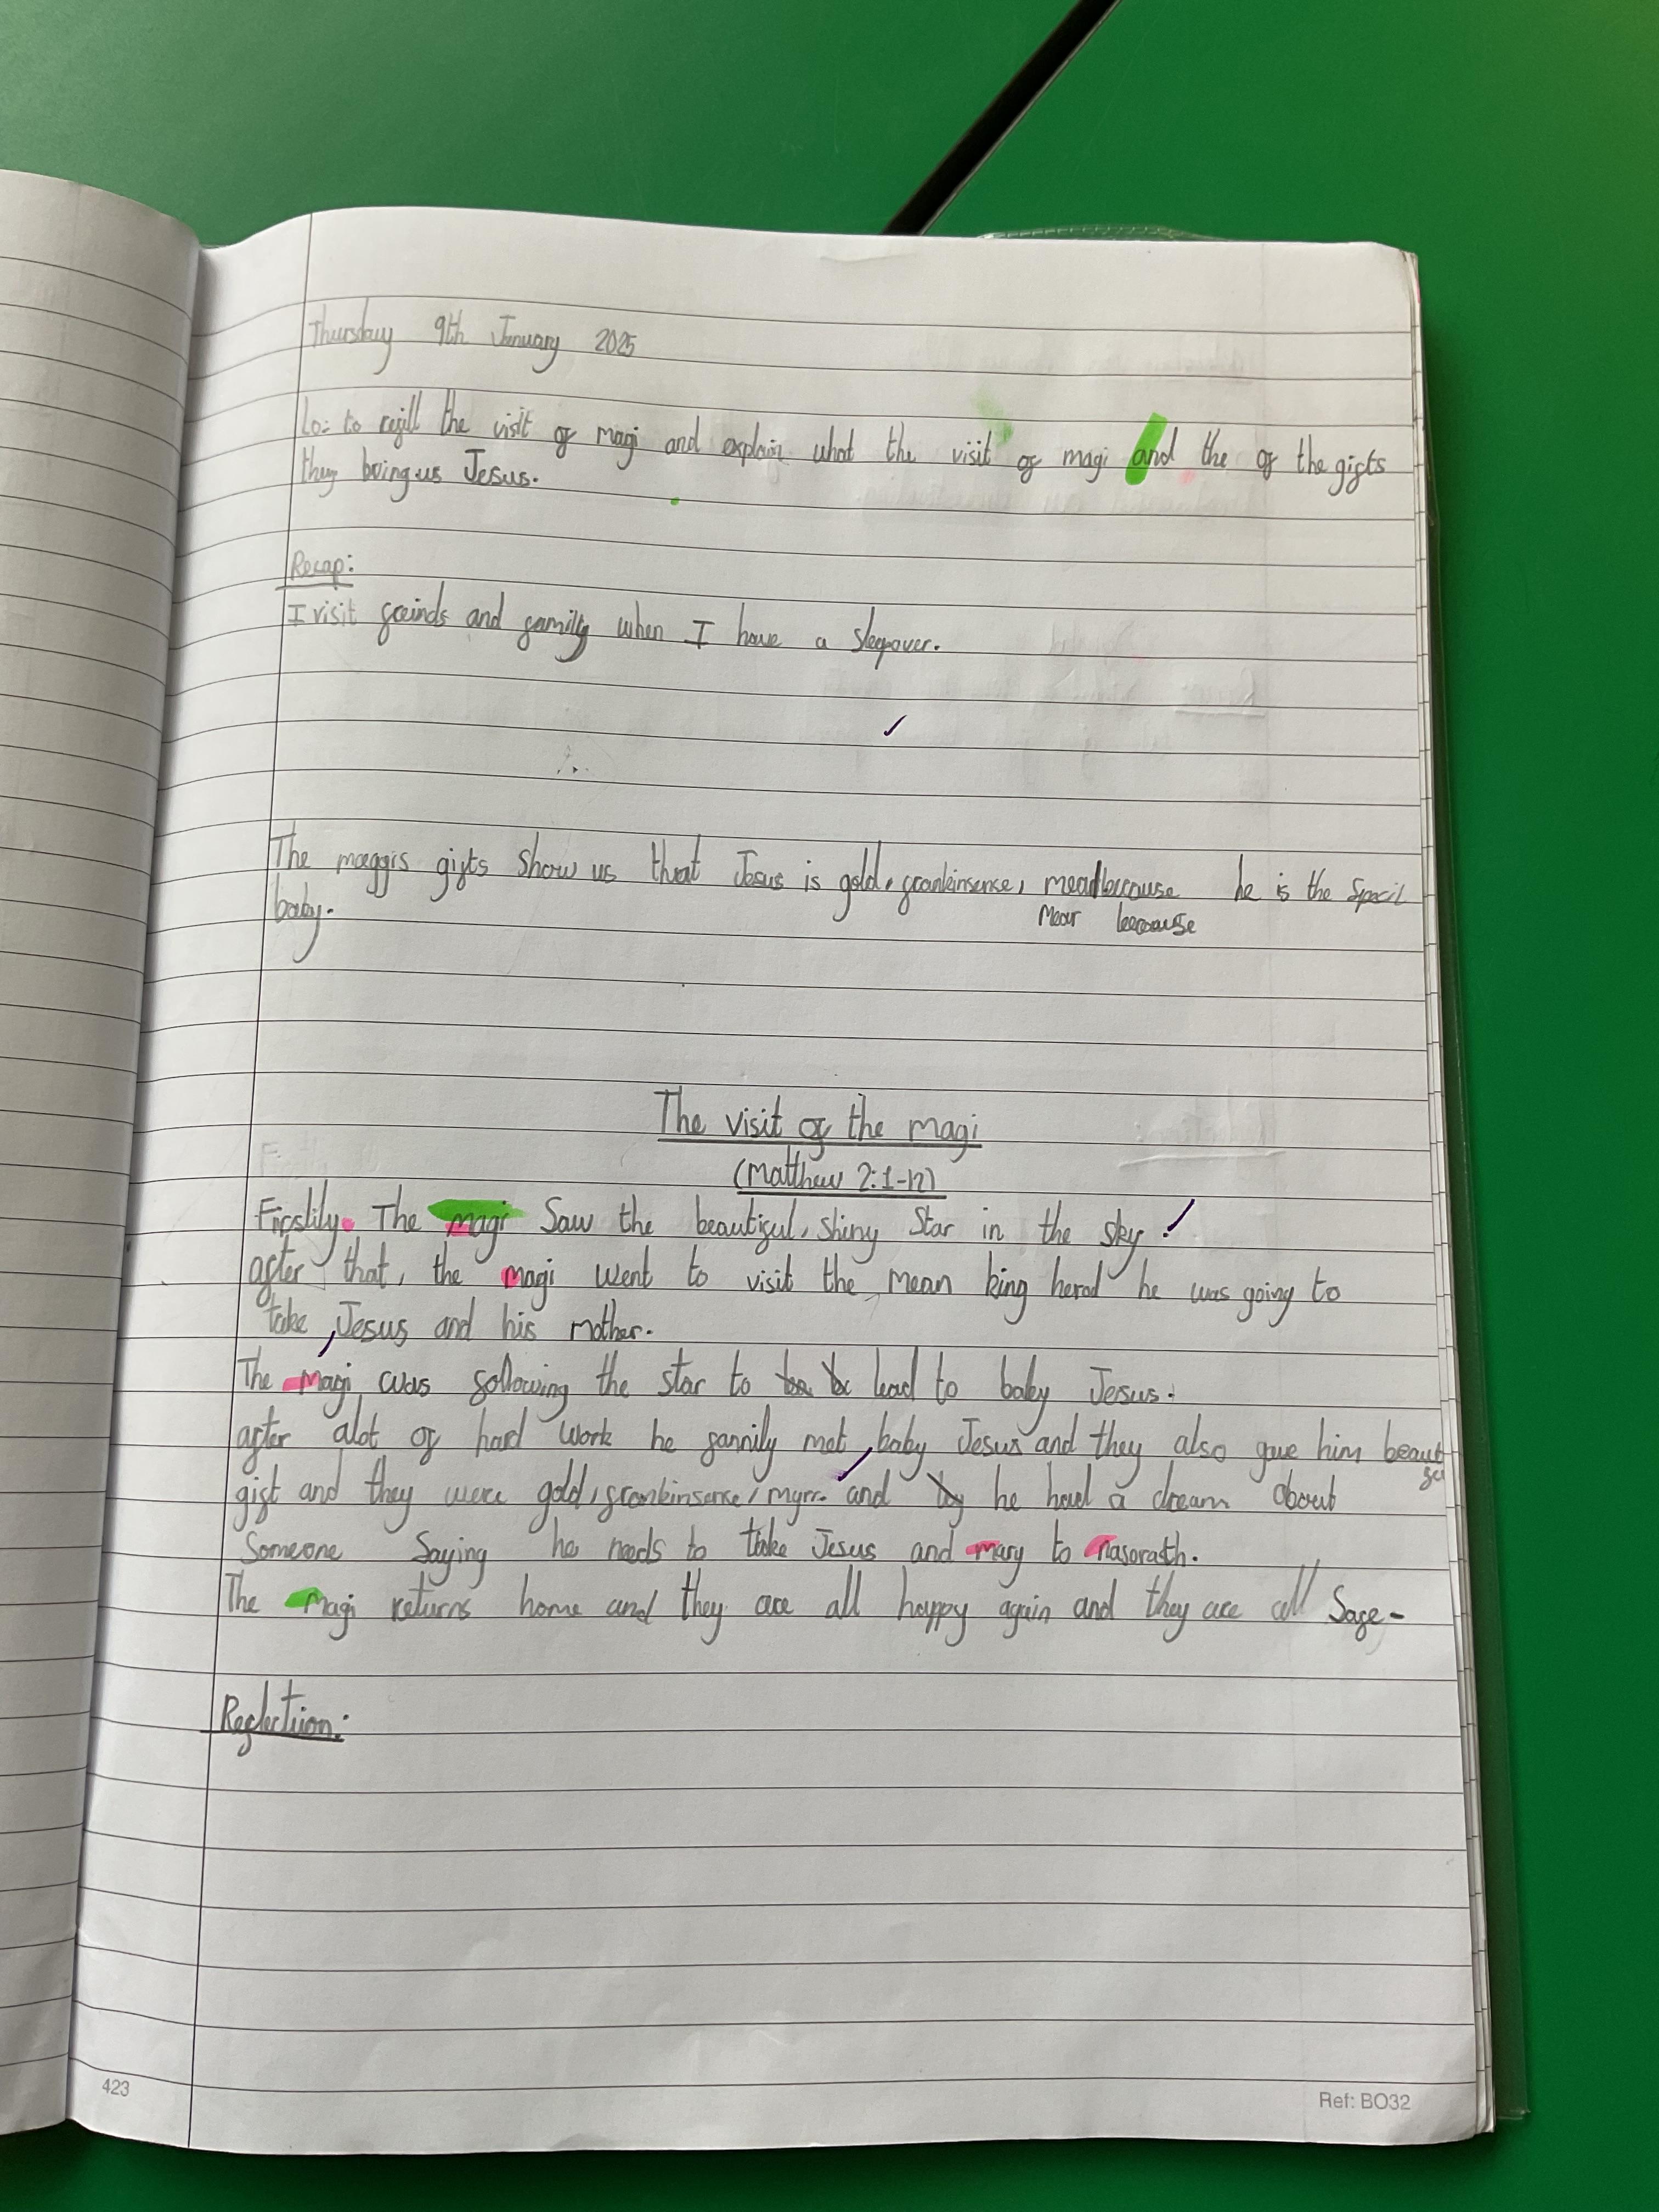 Thursday 9th January 2025
Lo: to refill the visit of magi and explain what the visit of magi and the of the gifts
they bring us Jesus.
Recap:
I visit freinds and family when I have a sleepover.
The maggis gifts show us that Jesus is gold, frankinsense, mear because he is the specil
mear because
baby.
The visit of the magi
(Matthew 2:1-12)
Firstlily. The magi saw the beautiful, shiny star in the sky.
after that, the magi went to visit the mean king herod he was going to
take, Jesus and his mother.
The magi was following the star to lead to baby Jesus.
after alot of hard work he fannily met baby Jesus and they also gave him beaut
gift and they were gold, frankinsense, myrr. and he had a dream about
someone saying he needs to take Jesus and mary to nasorath.
The magi returns home and they are all happy again and they are all safe-
Reflection:
423
Ref: BO32